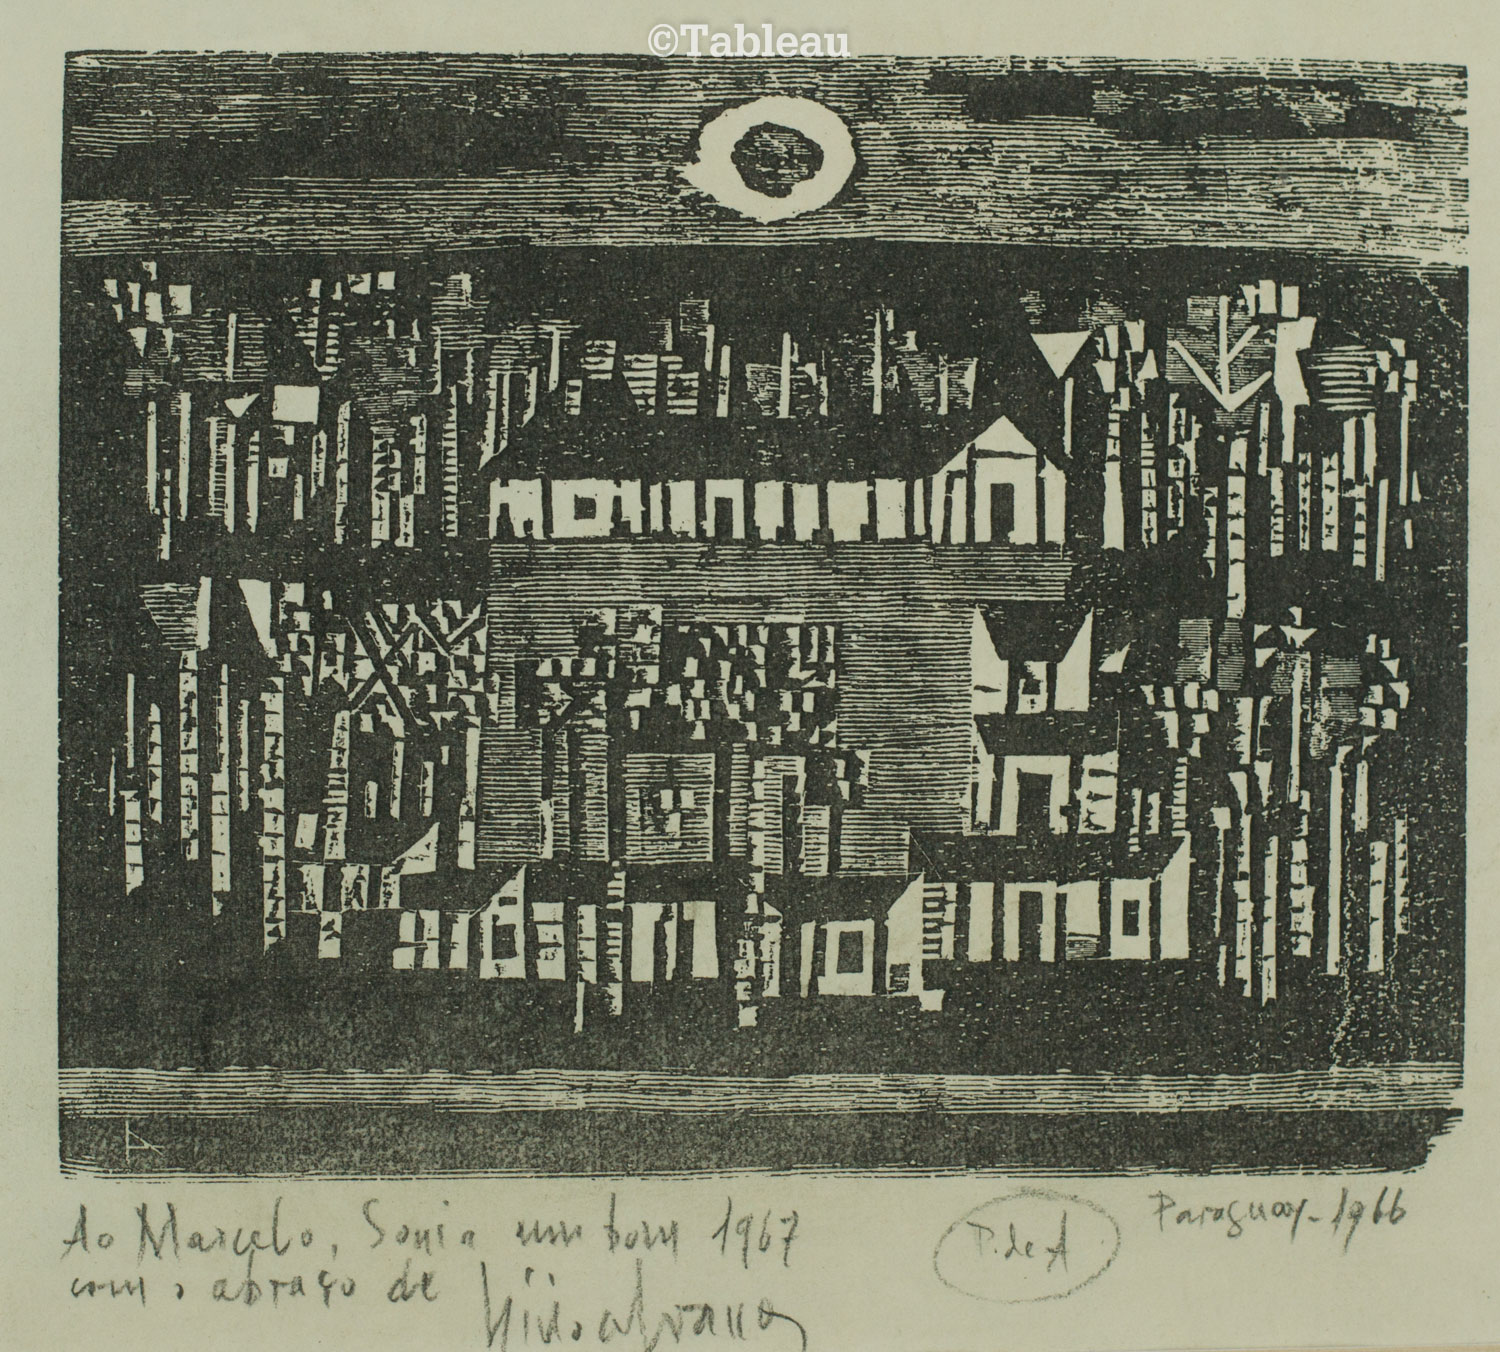 ©Tableau
Ao Marcelo, Sonia um bom 1967
com o abraço de
P. de A
Paraguay - 1966